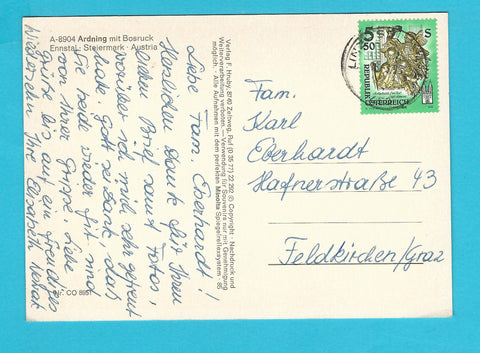 A-8904 Ardning mit Bosruck
Ennstal: Steiermark · Austria
Liebe Fam. Eberhardt!
Herzlichen Dank für Ihren
lieben Brief samt Fotos,
worüber ich mich sehr gefreut
habe. Gott sei Dank, daß
Sie beide wieder fit sind
von Ihrer Grippe. Liebe
Grüße bis auf ein freudiges
Wiedersehn Ihre Elisabeth
Nr. CO 8957
Verlag F. Hruby, 8740 Zeltweg, Ruf (0 35 77) 22 292 © Copyright · Nachdruck und
Weiterverarbeitung verboten · Verwendung für Souvenirs nur mit Genehmigung
möglich. · Alle Aufnahmen mit dem perfekten Minolta Spiegelreflexsystem · 85
5 50
S
REPUBLIK
ÖSTERREICH
Fam.
Karl
Eberhardt
Hafnerstraße 43
Feldkirchen/Graz